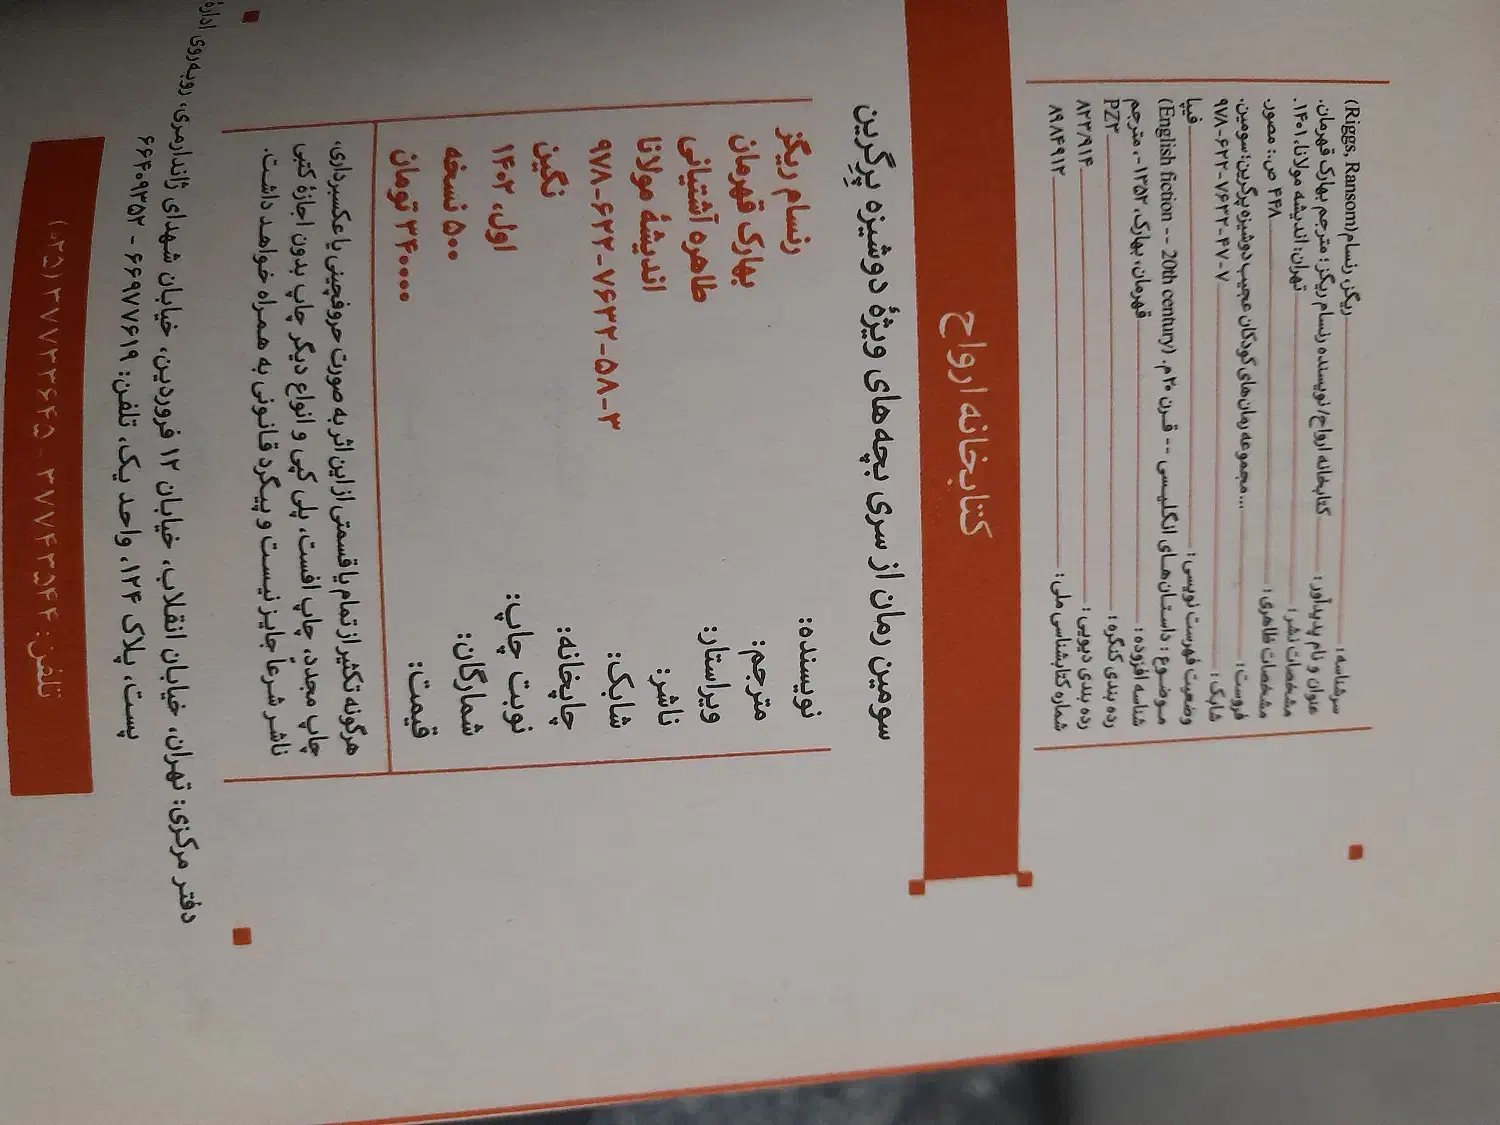 سرشناسه: ریگز، رنسام (Riggs, Ransom)
عنوان و نام پدیدآور: کتابخانه ارواح/ نویسنده رنسام ریگز؛ مترجم بهارک قهرمان.
مشخصات نشر: تهران: اندیشه مولانا، ۱۴۰۱.
مشخصات ظاهری: ۴۴۸ ص.: مصور
فروست: مجموعه رمان‌های کودکان عجیب دوشیزه پرگرین؛ سومین...
شابک: ۹۷۸-۶۲۲-۷۶۳۲-۴۷-۷
وضعیت فهرست نویسی: فیپا
موضوع: داستان‌های انگلیسی -- قرن ۲۰م. (English fiction -- 20th century)
شناسه افزوده: قهرمان، بهارک، ۱۳۵۲ -، مترجم
رده بندی کنگره: PZ۳
رده بندی دیویی: ۸۲۳/۹۱۴
شماره کتابشناسی ملی: ۸۹۸۴۹۱۲
کتابخانه ارواح
سومین رمان از سری بچه‌های ویژهٔ دوشیزه پرگرین
نویسنده: رنسام ریگز
مترجم: بهارک قهرمان
ویراستار: طاهره آشتیانی
ناشر: اندیشهٔ مولانا
شابک: ۹۷۸-۶۲۲-۷۶۳۲-۵۸-۳
چاپخانه: نگین
نوبت چاپ: اول، ۱۴۰۲
شمارگان: ۵۰۰ نسخه
قیمت: ۳۴۰۰۰۰ تومان
هرگونه تکثیر از تمام یا قسمتی از این اثر به صورت حروفچینی یا عکسبرداری،
چاپ مجدّد، چاپ افست، پلی کپی و انواع دیگر چاپ بدون اجازهٔ کتبی
ناشر شرعاً جایز نیست و پیگرد قانونی به همراه خواهد داشت.
دفتر مرکزی: تهران، خیابان انقلاب، خیابان ۱۲ فروردین، خیابان شهدای ژاندارمری، روبه‌روی ادارهٔ
پست، پلاک ۱۲۴، واحد یک، تلفن: ۶۶۹۷۷۶۱۹ - ۶۶۴۰۹۳۵۲
تلفن: ۳۷۷۴۳۵۴۴ - ۳۷۷۳۳۶۴۵ (۰۲۵)